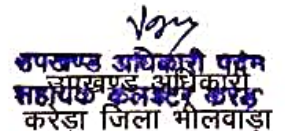 उपखण्ड अधिकारी पदेन
उपखण्ड अधिकारी
सहायक कलक्टर करेड़ा
करेड़ा जिला भीलवाड़ा